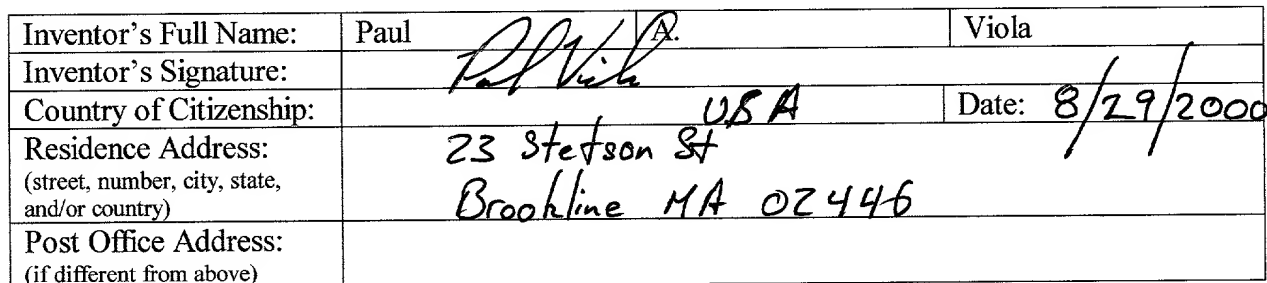 Inventor's Full Name: Paul A. Viola
Inventor's Signature: Paul Viola
Country of Citizenship: USA Date: 8/29/2000
Residence Address: 23 Stetson St
(street, number, city, state,
and/or country) Brookline MA 02446
Post Office Address:
(if different from above)